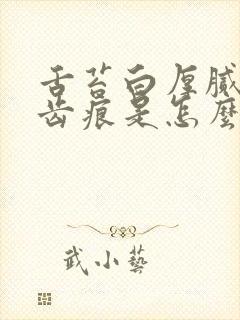 舌苔白厚腻
齿痕是怎麽
武小藝